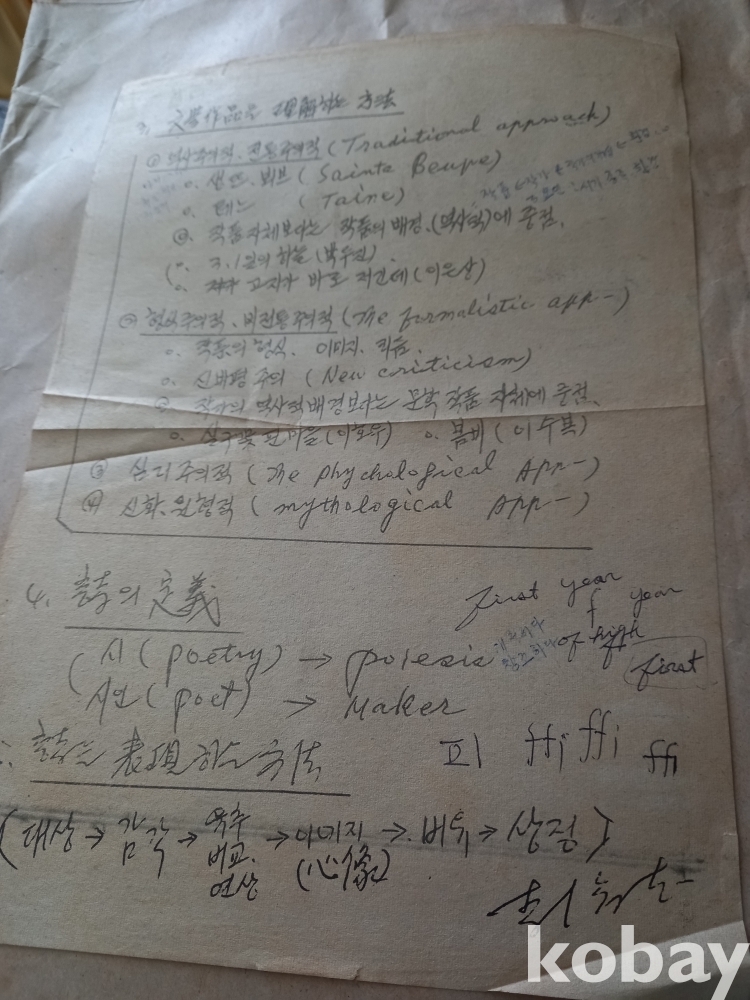 3. 文學作品을 理解하는 方法
① 역사주의적. 전통주의적 (Traditional approach)
o. 생뜨. 뵈브 (Sainte Beuve)
o. 테느 (Taine)
◎. 작품 자체보다는 작품의 배경.(역사적)에 중점.
( o. 3.1절의 하늘 (박두진)
o. 고지가 바로 저긴데 (이은상)
② 형식주의적. 비전통주의적 (The formalistic app-)
o. 작품의 형식. 이미지.
o. 신비평 주의 (New criticism)
◎ 작가의 역사적 배경보다는 문학 작품 자체에 중점.
o. 살구꽃 핀 마을 (이호우) o. 봄비 (이수복)
③ 심리주의적 (The phychological App-)
④ 신화. 원형적 (mythological App-)
4. 詩의 定義
first year
f year
( 시 (poetry) → poiesis
of high
ff
first
시인 (poet) → Maker
詩는 表現하는 方法
피 ffi ffi ffi
( 대상 → 감각 → 유추 비교. 연상 → 이미지 (心像) → 비유 → 상징 )
kobay